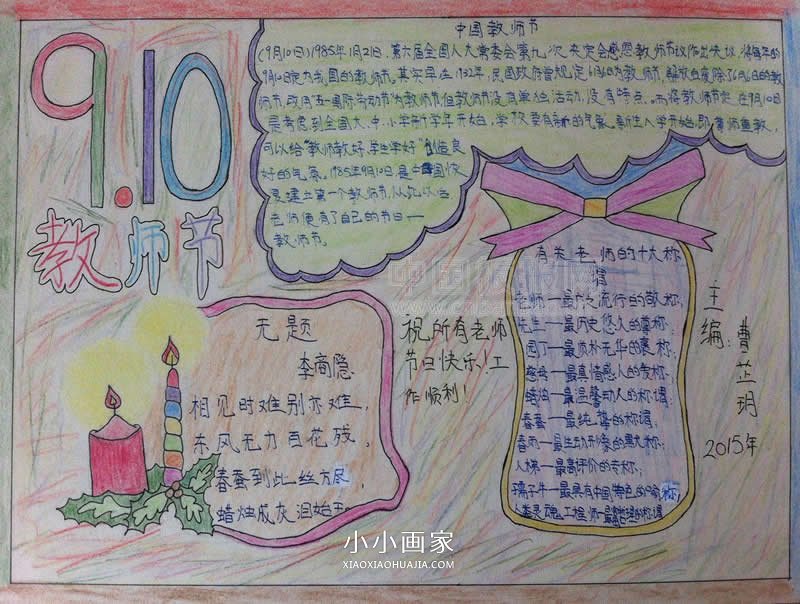 9.10
教师节
中国教师节
(9月10日)1985年1月21日,第六届全国人大常委会第九次
9月10日定为我国的教师节。其实早在1932年,民国政府曾规定6月6日为教师节,解放后废除了6月6日的教
师节,改用五一国际劳动节为教师节,但教师节没有单独活动,没有特点。而将教师节定在9月10日
是考虑到全国大、中、小学新学年开始,学校要有新的气象。新生入学开始,即尊师重教,
可以给"教师教好,学生学好"创造良
好的气氛。1985年9月10日是中国恢
复建立第一个教师节,从此以后
老师便有了自己的节日—
教师节。
无题
李商隐
相见时难别亦难,
东风无力百花残。
春蚕到此丝方尽,
蜡烛成灰泪始干
祝所有老师
节日快乐!工
作顺利!
有关老师的十大称
谓
老师—最广泛流行的敬称;
先生—最历史悠久的尊称;
园丁—最质朴无华的褒称;
慈母—最真情感人的专称;
蜡烛—最温馨动人的称谓;
春蚕—最纯挚的称谓;
春雨—最生动形象的果大称;
人梯—最高评价的专称;
孺子牛—最具有中国特色的喻称;
人类灵魂工程师—最富哲理的称谓
主编:曹芷玥
2015年
小小画家
XIAOXIAOHUAJIA.COM